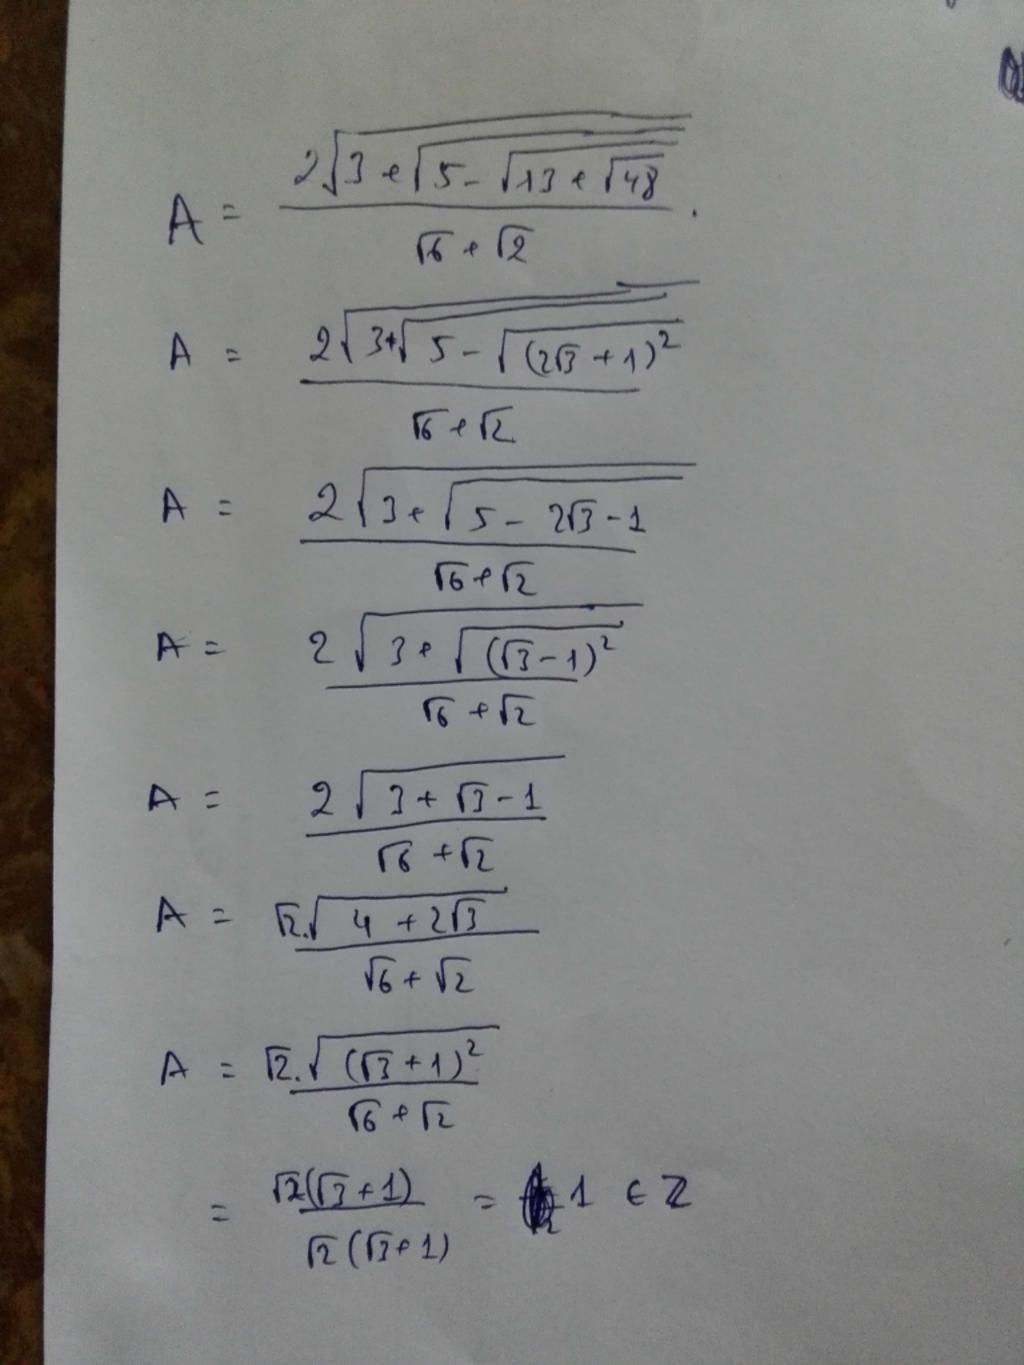 A = \frac{2\sqrt{3+\sqrt{5-\sqrt{13+\sqrt{48}}}}}{\sqrt{6}+\sqrt{2}}.
A = \frac{2\sqrt{3+\sqrt{5-\sqrt{(2\sqrt{3}+1)^2}}}}{\sqrt{6}+\sqrt{2}}
A = \frac{2\sqrt{3+\sqrt{5-2\sqrt{3}-1}}}{\sqrt{6}+\sqrt{2}}
A = \frac{2\sqrt{3+\sqrt{(\sqrt{3}-1)^2}}}{\sqrt{6}+\sqrt{2}}
A = \frac{2\sqrt{3+\sqrt{3}-1}}{\sqrt{6}+\sqrt{2}}
A = \frac{\sqrt{2}.\sqrt{4+2\sqrt{3}}}{\sqrt{6}+\sqrt{2}}
A = \frac{\sqrt{2}.\sqrt{(\sqrt{3}+1)^2}}{\sqrt{6}+\sqrt{2}}
= \frac{\sqrt{2}(\sqrt{3}+1)}{\sqrt{2}(\sqrt{3}+1)} = 1 ∈ ℤ